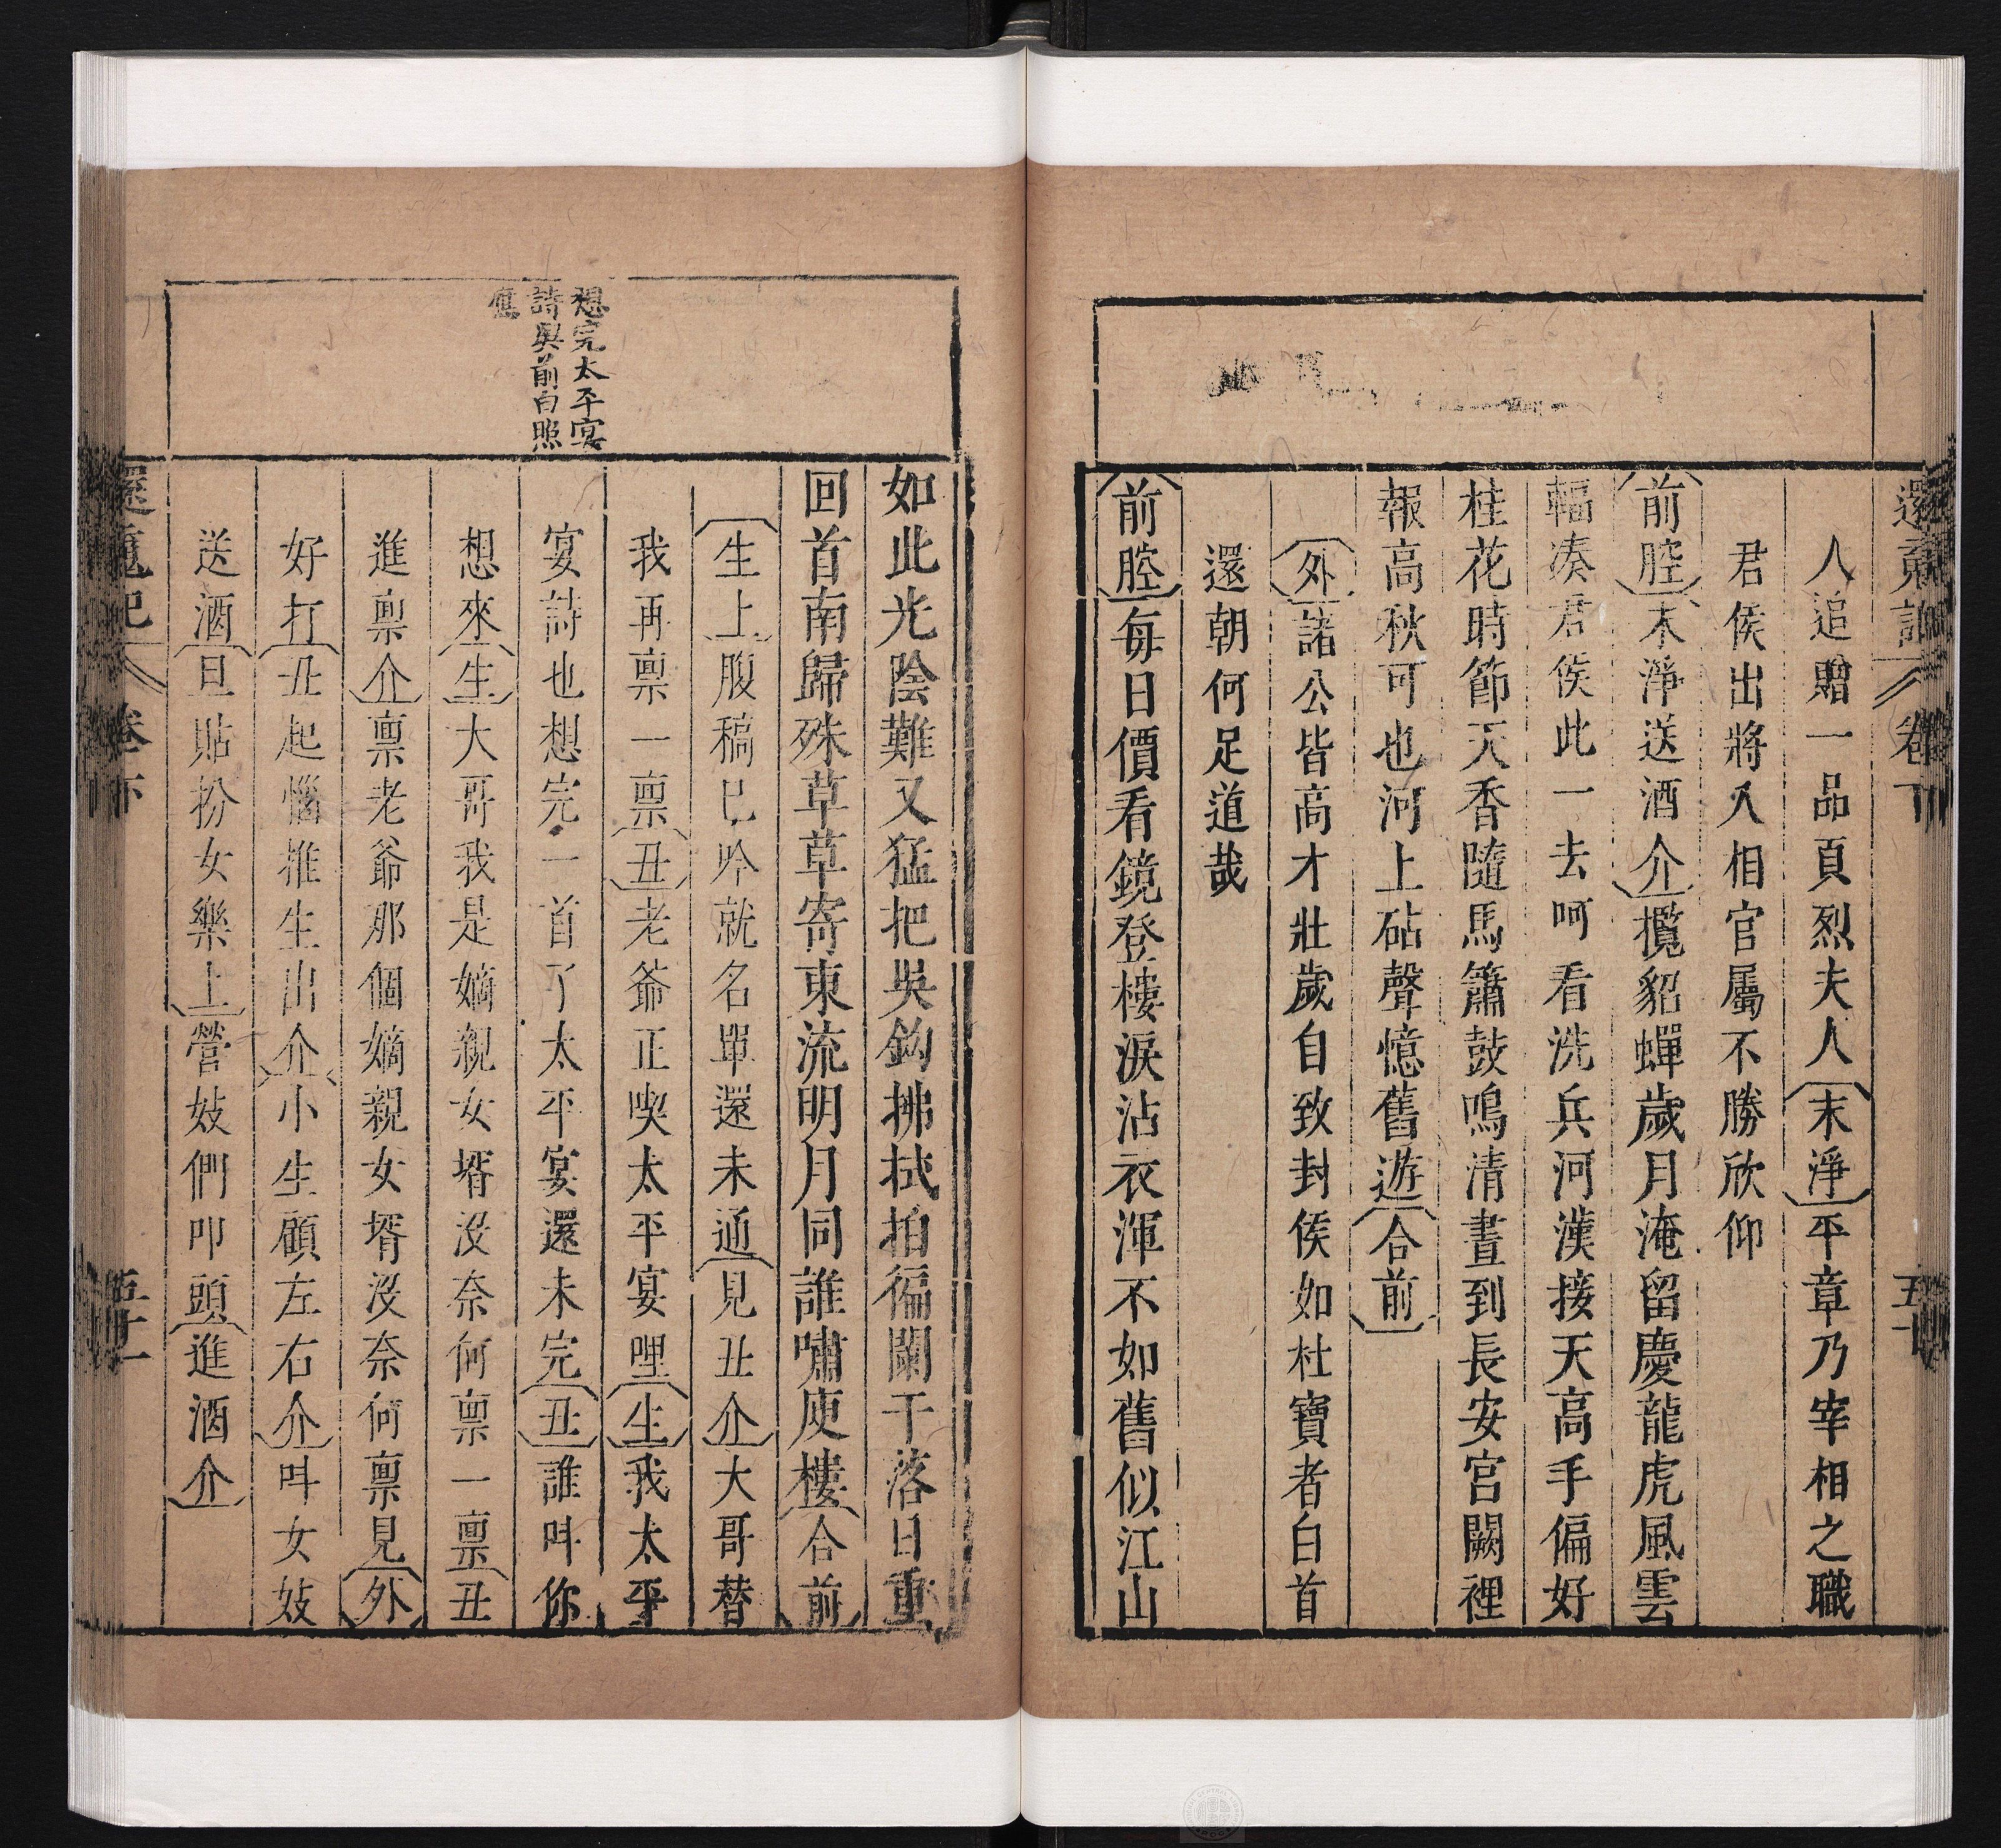 還魂記 卷下 五十
人追贈一品貞烈夫人末淨平章乃宰相之職
君侯出將入相官屬不勝欣仰
前腔末淨送酒介攬貂蟬歲月淹留慶龍虎風雲
輻湊君侯此一去呵看洗兵河漢接天高手偏好
桂花時節天香隨馬簫鼓鳴清晝到長安宮闕裡
報高秋可也河上砧聲憶舊遊合前
外諸公皆高才壯歲自致封侯如杜寶者白首
還朝何足道哉
前腔每日價看鏡登樓淚沾衣渾不如舊似江山
想完太平宴
詩與前白照
應
如此光陰難又猛把吳鈎拂拭拍徧闌干落日重
回首南歸殊草草寄東流明月同誰嘯庾樓合前
生上腹稿已吟就名單還未通見丑介大哥替
我再稟一稟丑老爺正喫太平宴哩生我太平
宴詩也想完一首了太平宴還未完丑誰呌你
想來生大哥我是嫡親女壻沒奈何稟一稟丑
進稟介稟老爺那個嫡親女壻沒奈何稟見外
好打丑起惱推生出介小生顧左右介呌女妓
送酒旦貼扮女樂上營妓們叩頭進酒介
還魂記 卷下 五十一